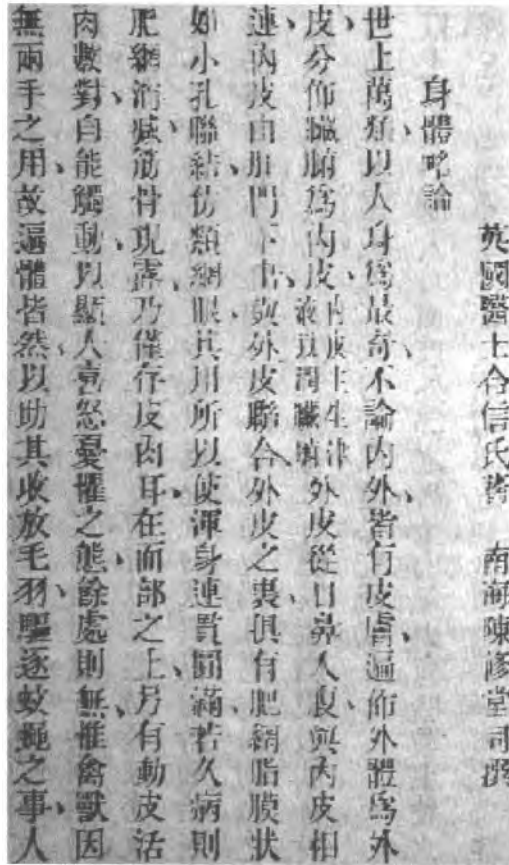 英國醫士合信氏著　南海陳修堂同撰
身體略論
世上萬類以人身爲最奇、不論內外皆有皮膚、遍佈外體爲外
皮、分佈臟腑爲內皮、內皮主生津液以潤臟腑外皮從口鼻入腹與內皮相
連、內皮由肛門下出、與外皮聯合、外皮之裏、俱有肥網脂膜狀
如小孔聯結、仿類網眼、其用所以使渾身連貫圓滿、若久病則
肥網消減、筋骨現露、乃僅存皮肉耳、在面部之上、另有動皮活
肉數對、自能觸動、以顯人喜怒憂懼之態、餘處則無、惟禽獸因
無兩手之用、故遍體皆然、以助其收放毛羽、驅逐蚊蠅之事、人